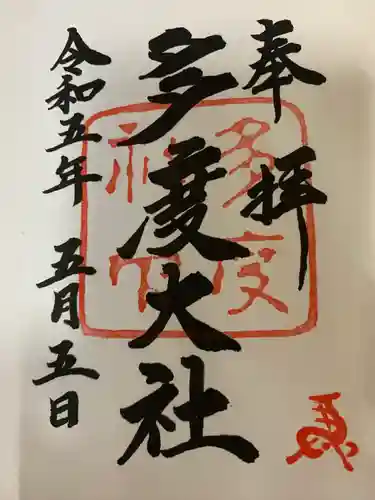 奉拝
多度大社
令和五年 五月五日
多度
神社